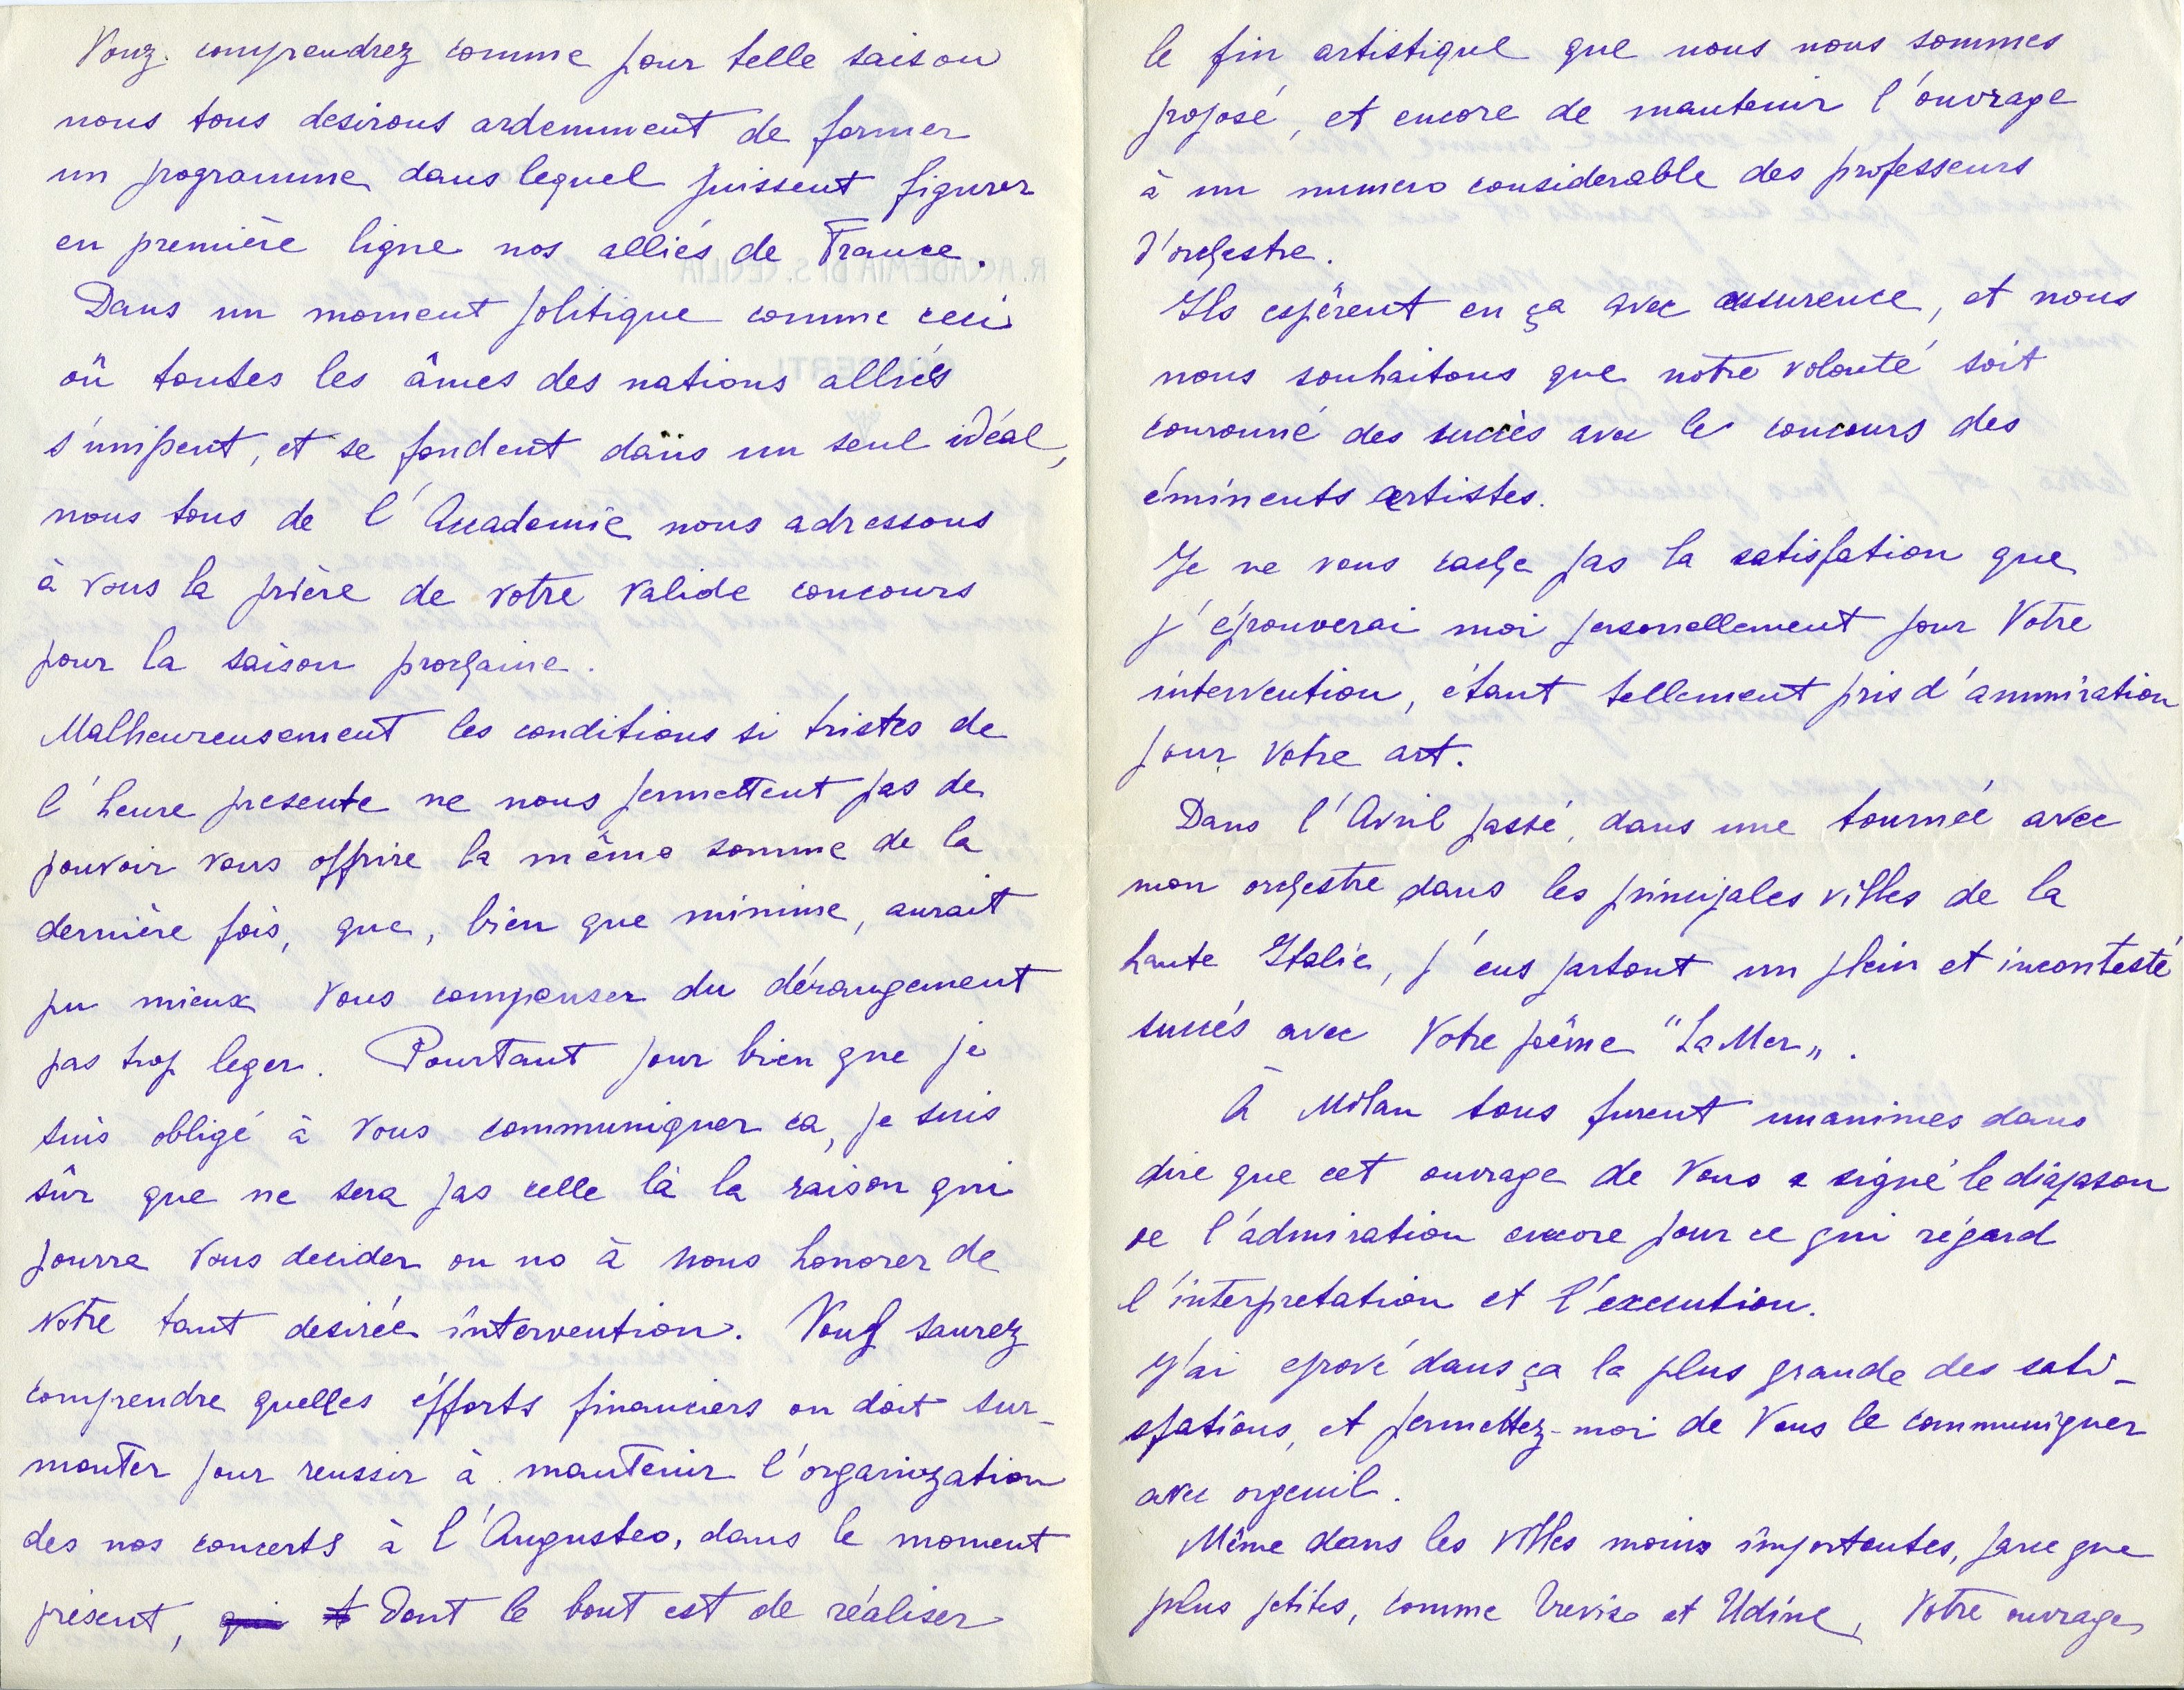 Vouz comprendrez comme pour telle saison
nous tous desirons ardemment de former
un programme dans lequel puissent figurer
en première ligne nos alliés de France.
Dans un moment politique comme ceci
oû toutes les âmes des nations alliés
s'unissent, et se fondent dans un seul idéal,
nous tous de l'Accademie nous adressons
à vous la prière de votre valide concours
pour la saison prochaine.
Malheureusement les conditions si tristes de
l'heure presente ne nous permettent pas de
pouvoir vous offrire la même somme de la
dernière fois, que, bien que minime, aurait
pu mieux Vous compenser du dérangement
pas trop leger. Pourtant pour bien que je
suis obligé à Vous communiquer ca, je suis
sûr que ne sera pas celle là la raison qui
pourra Vous decider ou no à nous honorer de
Votre tant desirée intervention. Vous saurez
comprendre quelles éfforts financiers on doit sur-
monter pour reussir à mantenir l'organization
des nos concerts à l'Augusteo, dans le moment
présent, qui Dont le bout est de réaliser
le fin artistique que nous nous sommes
proposé, et encore de mantenir l'ouvrage
à un numero considerable des professeurs
d'orchestre.
Ils espèrent en ça avec assurence, et nous
nous souhaitons que notre volonté soit
couronné des succès avec le concours des
éminents artistes.
Je ne vous cache pas la satisfation que
j'éprouverai moi personellement pour Votre
intervention, étant tellement pris d'ammiration
pour Votre art.
Dans l'Avril passé, dans une tournée avec
mon orchestre dans les principales villes de la
haute Italie, j'eus partout un plein et incontesté
succés avec Votre poême "La Mer„.
À Milan tous furent unanimes dans
dire que cet ouvrage de Vous a signé le diapason
de l'admiration encore pour ce qui régard
l'interpretation et l'execution.
J'ai eprové dans ça la plus grande des sati-
sfations, et permettez-moi de Vous le communiquer
avec orgeuil.
Même dans les villes moins importantes, parce que
plus petites, comme Treviso et Udine, Votre ouvrage